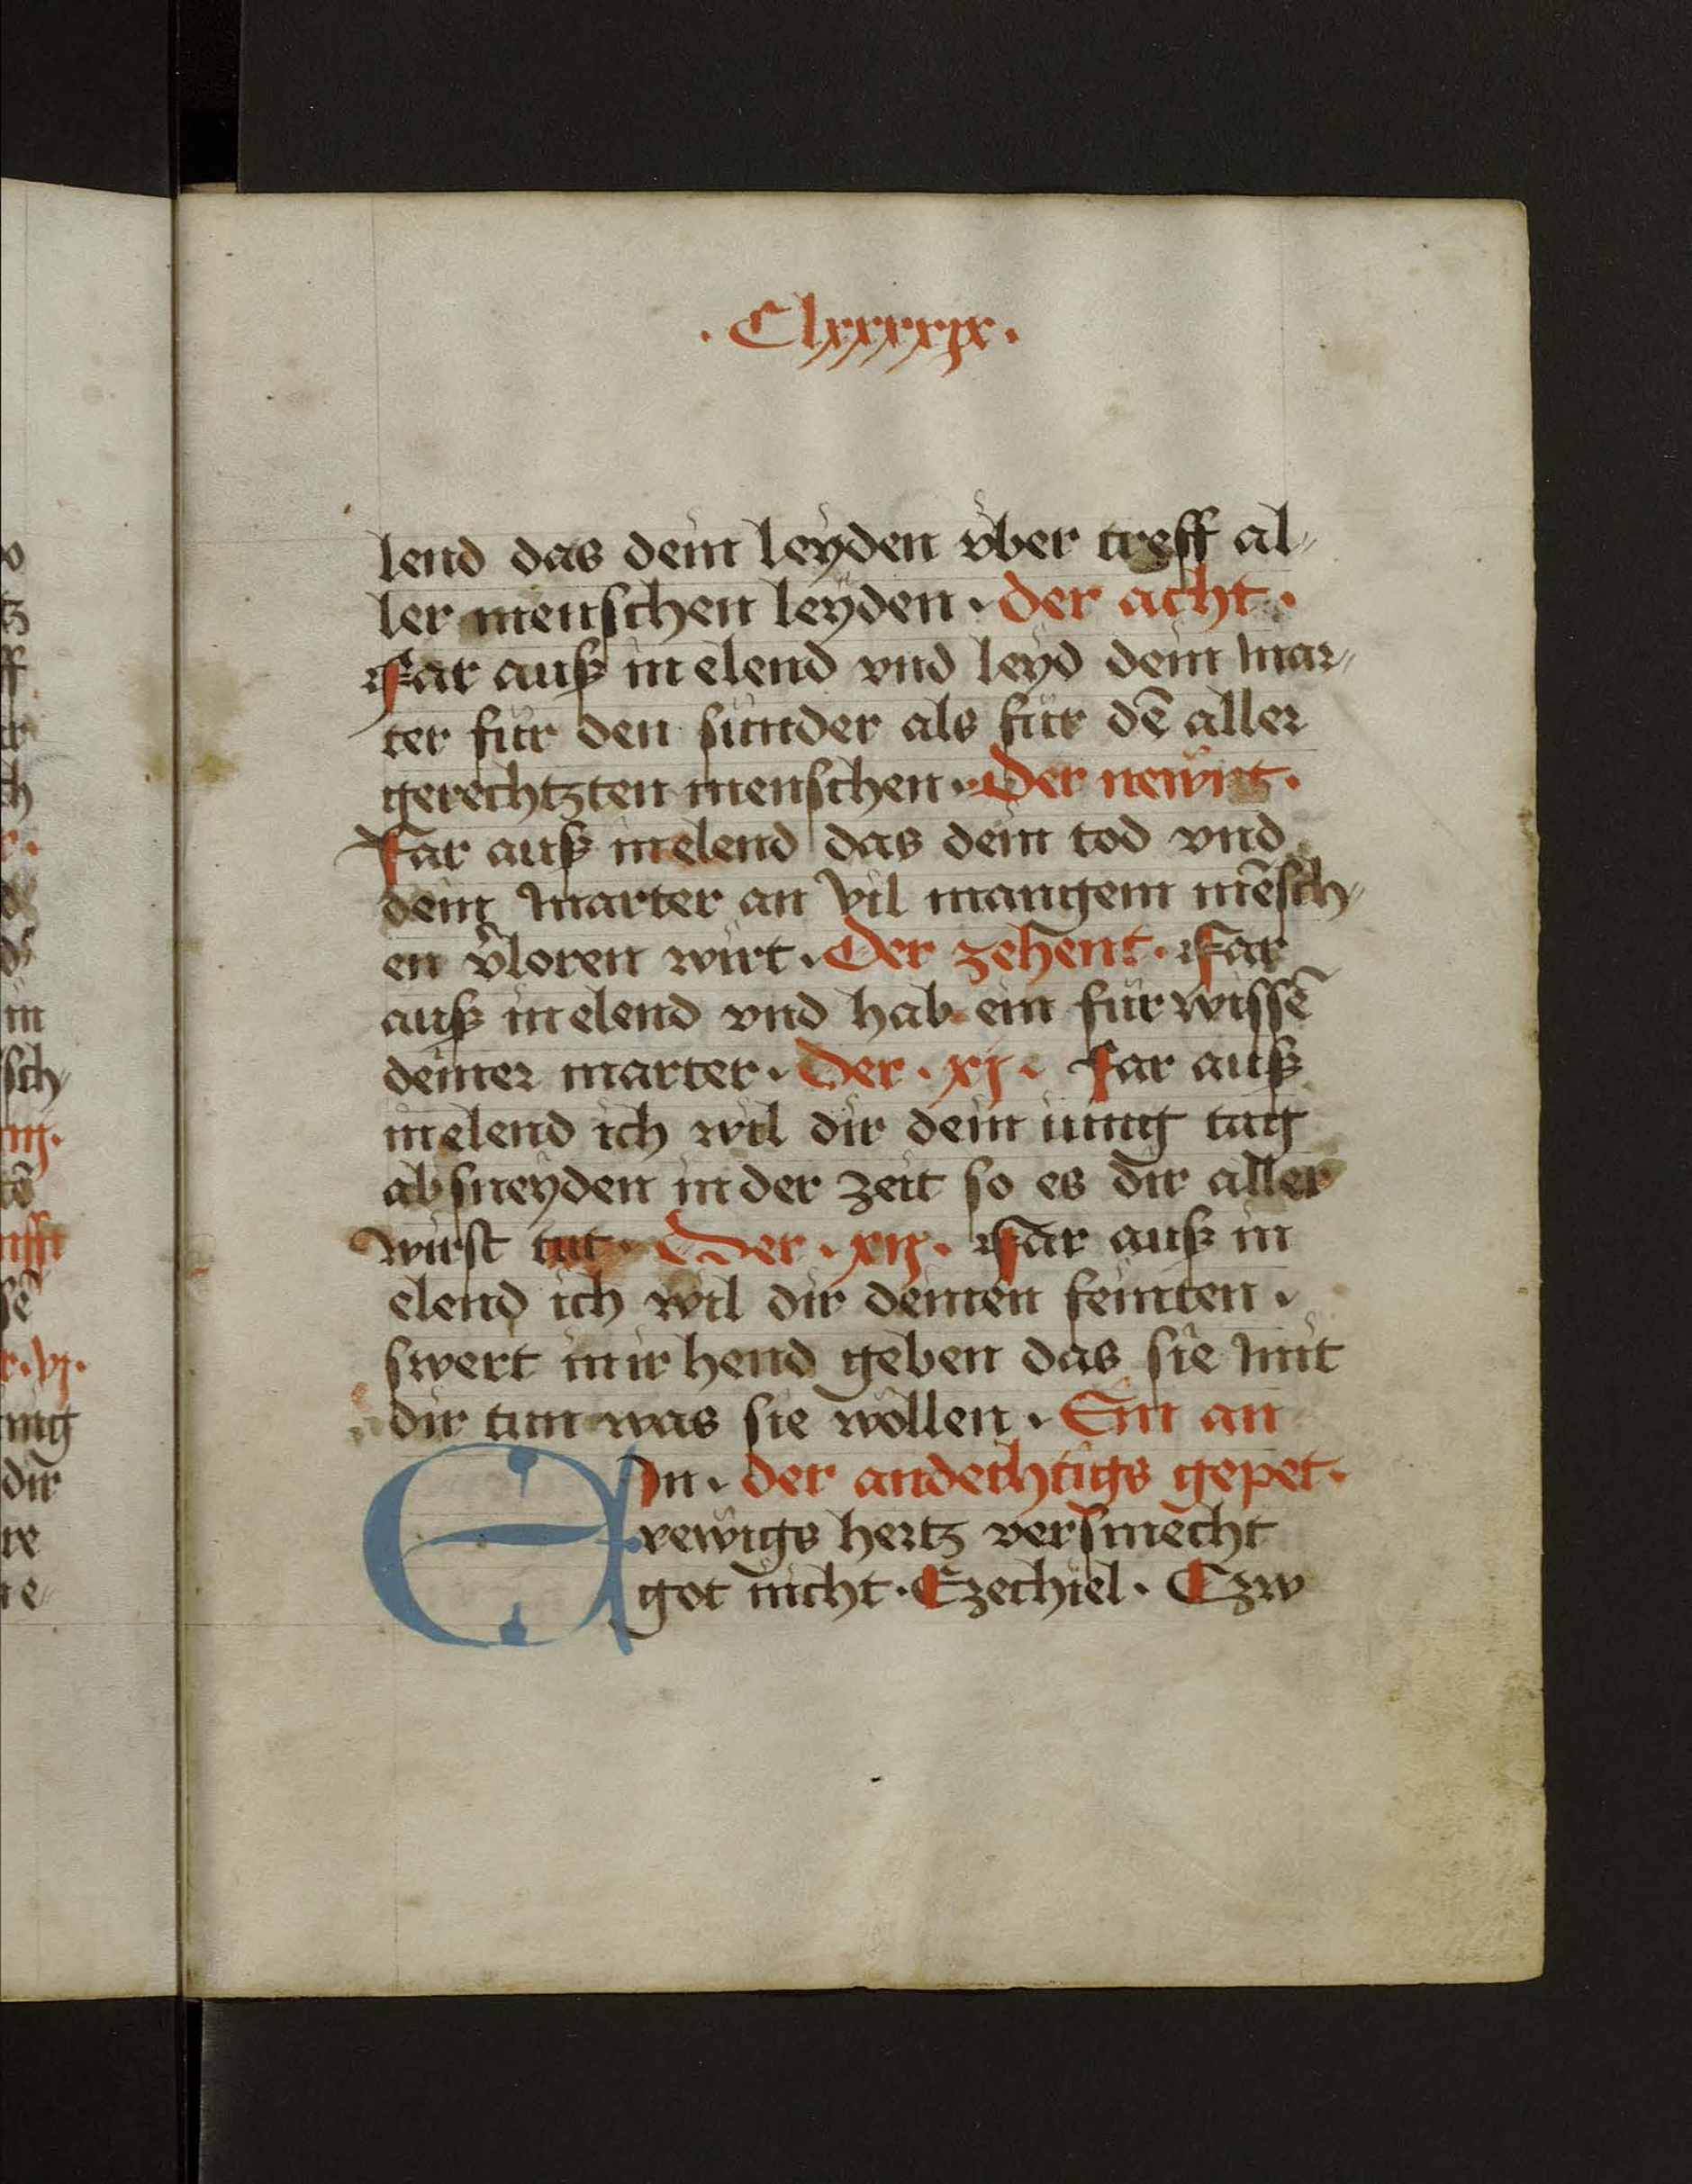 · Clxxxxix ·
lend das dein leyden vber treff al-
ler menschen leyden · der acht ·
Far auß in elend vnd leyd dein mar-
ter für den sunder als für dē aller
gerechtzten menschen · Der newnt ·
Far auß in elend das dein tod vnd
dein marter an vil mangem mēsch-
en v̄loren wirt · Der zehent · Far
auß in elend vnd hab ein für wissē
deiner marter · Der · xj · Far auß
in elend ich wil dir dein iung tag
ab sneyden in der zeit so es dir aller
wirst tut · Der · xij · Far auß in
elend ich wil dir deinen feinten ·
swert in ir hend geben das sie mit
dir tun was sie wöllen · Ein an
EIn · der andechtigs gepet ·
rewigs hertz versmecht
got nicht · Ezechiel · Czw